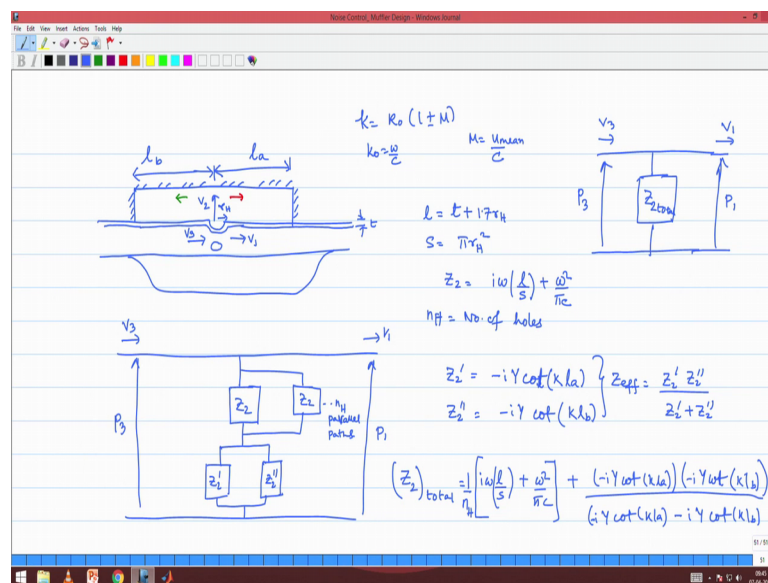 Noise Control_Muffler Design - Windows Journal
File Edit View Insert Actions Tools Help
B I
k = k₀ (1 ± M)
k₀ = ω/c
M = Umean/C
lb
la
V₂
rH
V₃
V₁
t
l = t + 1.7rH
S = πrH²
Z₂ = iω(l/s) + ω²/πc
nH = No. of holes
V₃
V₁
P₃
Z₂total
P₁
V₃
V₁
P₃
Z₂
Z₂
...nH
parallel
paths
P₁
Z₂'
Z₂''
Z₂' = -iY cot(kla)
Z₂'' = -iY cot(klb)
Zeff = Z₂' Z₂'' / Z₂' + Z₂''
(Z₂)total = 1/nH [iω(l/s) + ω²/πc] + (-iY cot(kla)) (-iY cot(klb)) / (-iY cot(kla) - iY cot(klb))
51 / 51
51
09:43